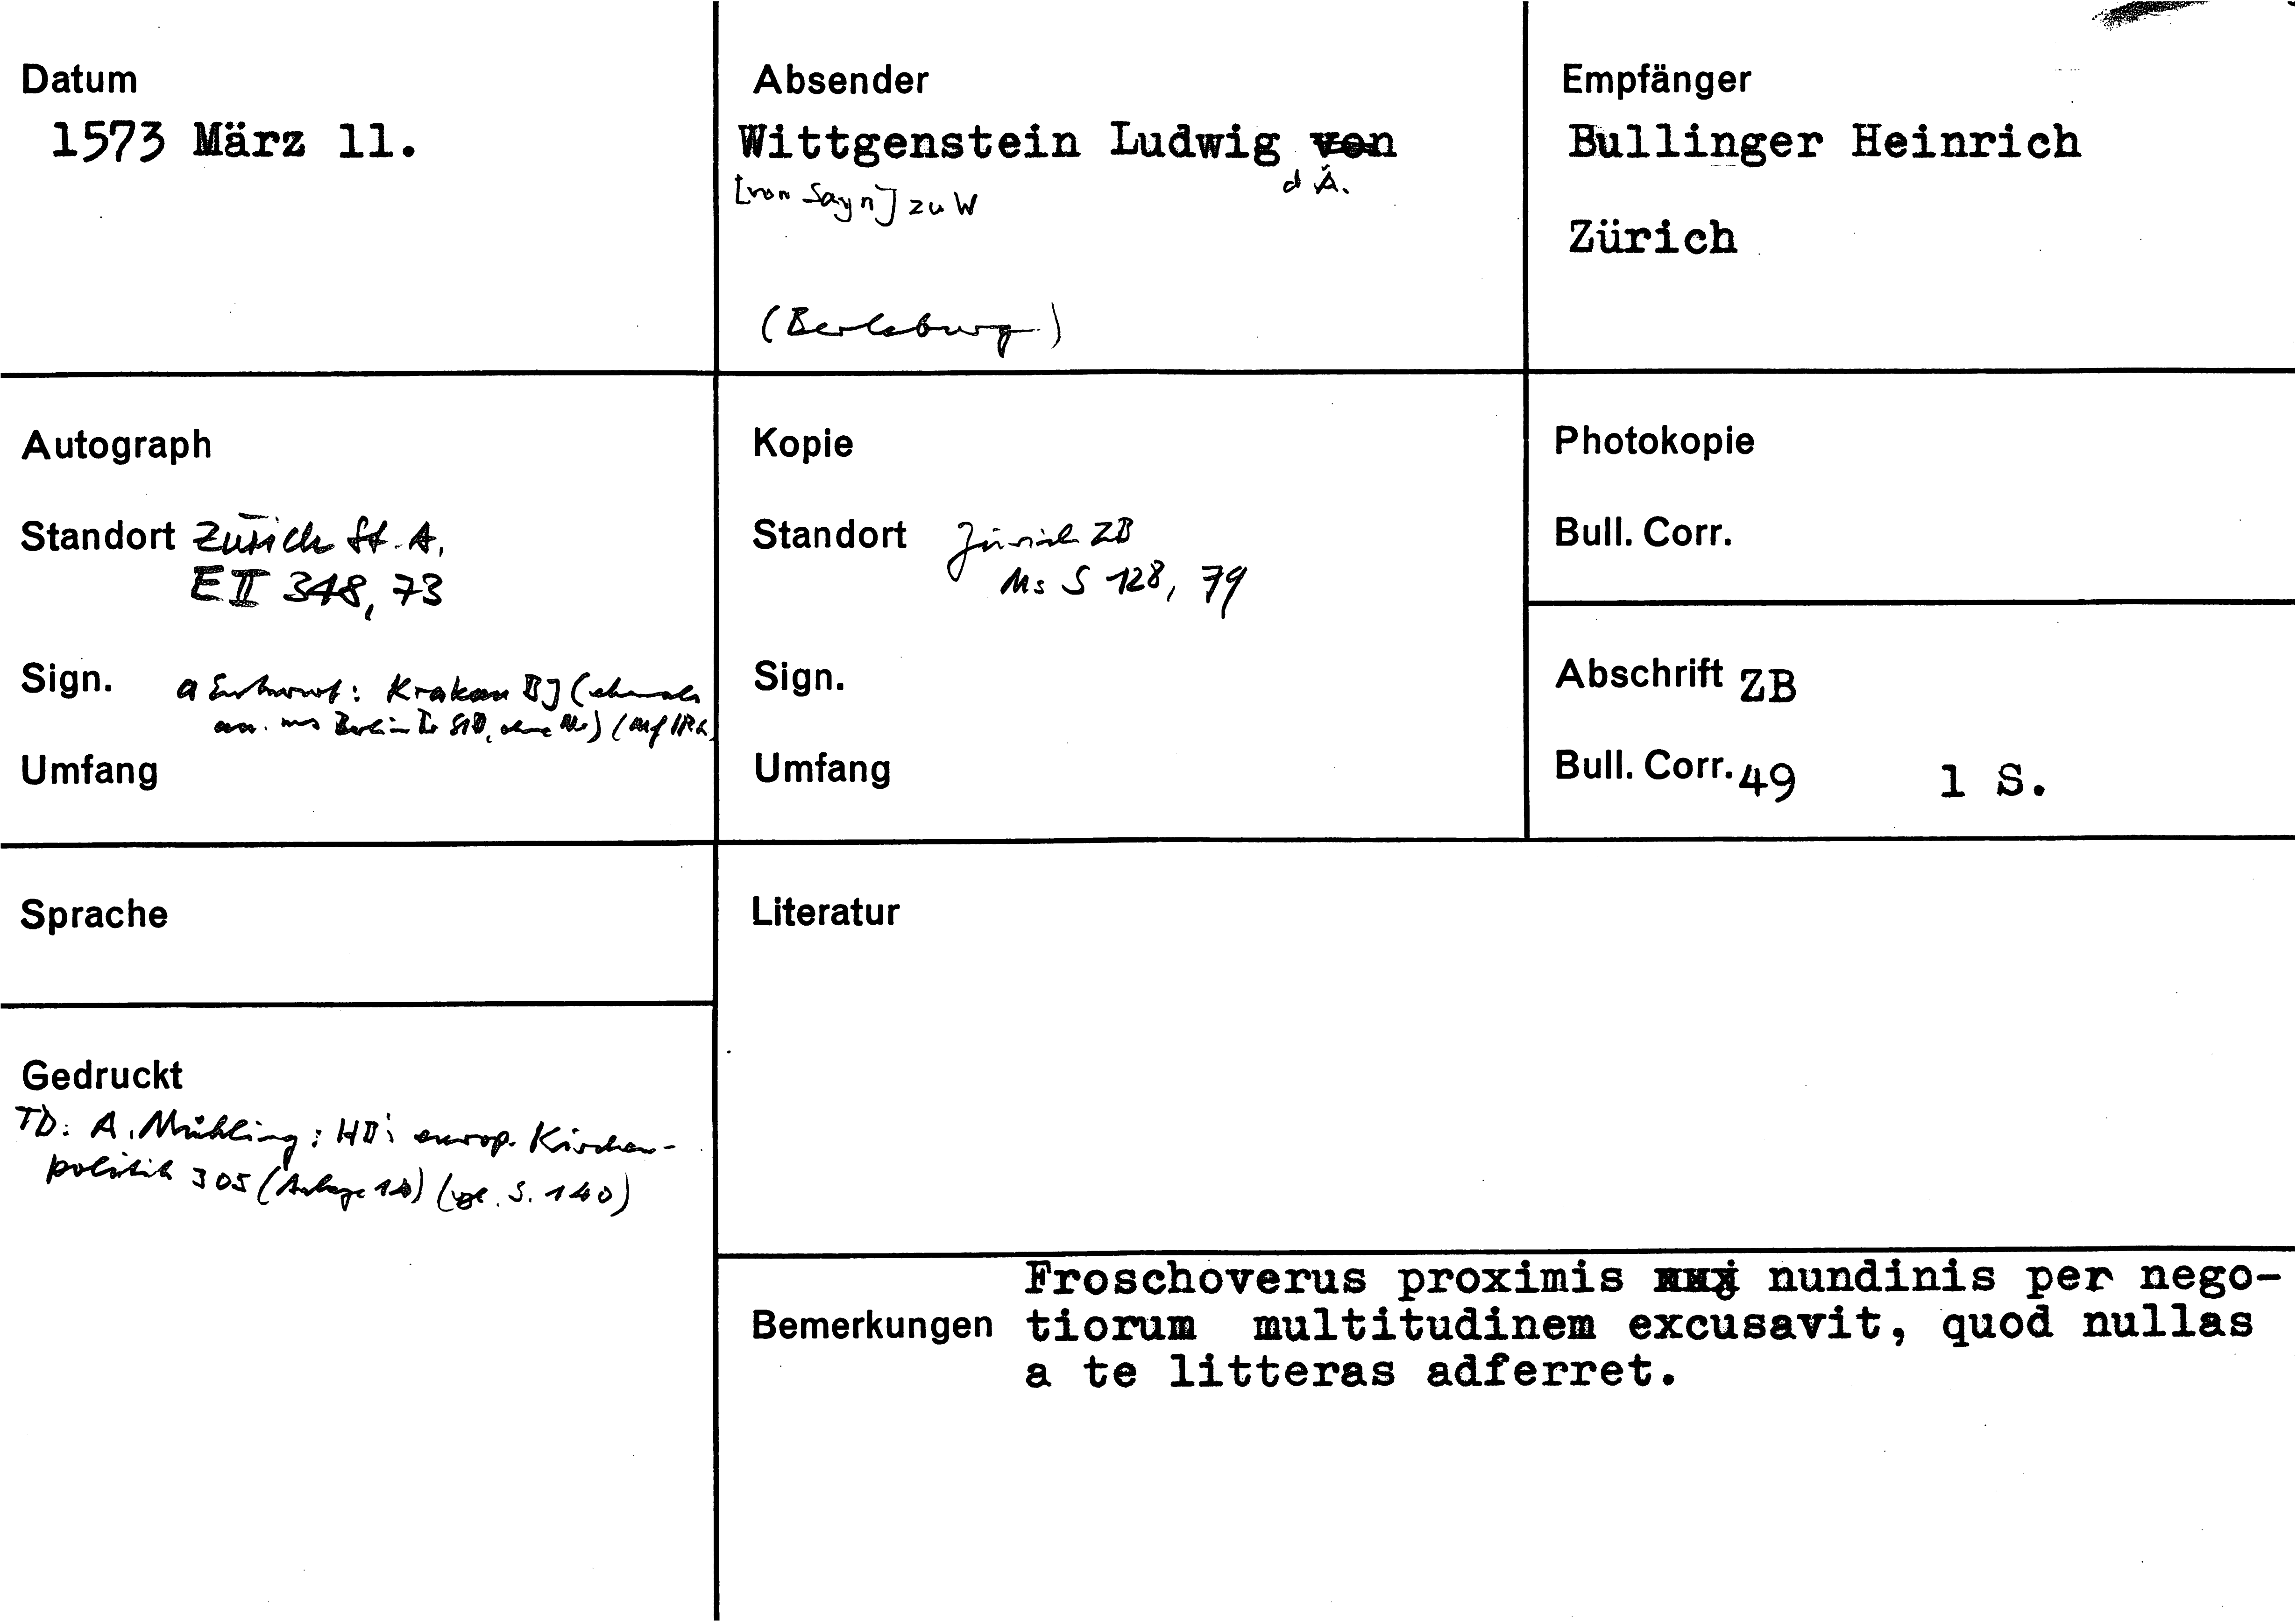 Datum
1573 März 11.
Absender
Wittgenstein Ludwig von
d Ä.
[von Sayn] zu W
(Berleburg)
Empfänger
Bullinger Heinrich
Zürich
Autograph
Standort Zürich St. A,
E II 348, 73
Sign. a Entwurf: Krakau BJ (ehemals
Berlin
Umfang
Kopie
Standort Zürich ZB
Ms S 128, 79
Sign.
Umfang
Photokopie
Bull. Corr.
Abschrift ZB
Bull. Corr. 49 1 S.
Sprache
Literatur
Gedruckt
TD: A. Mühling: europ. Kirchen-
politik 305 (Anlage (vgl. S. 140)
Bemerkungen
Froschoverus proximis nundinis per nego-
tiorum multitudinem excusavit, quod nullas
a te litteras adferret.